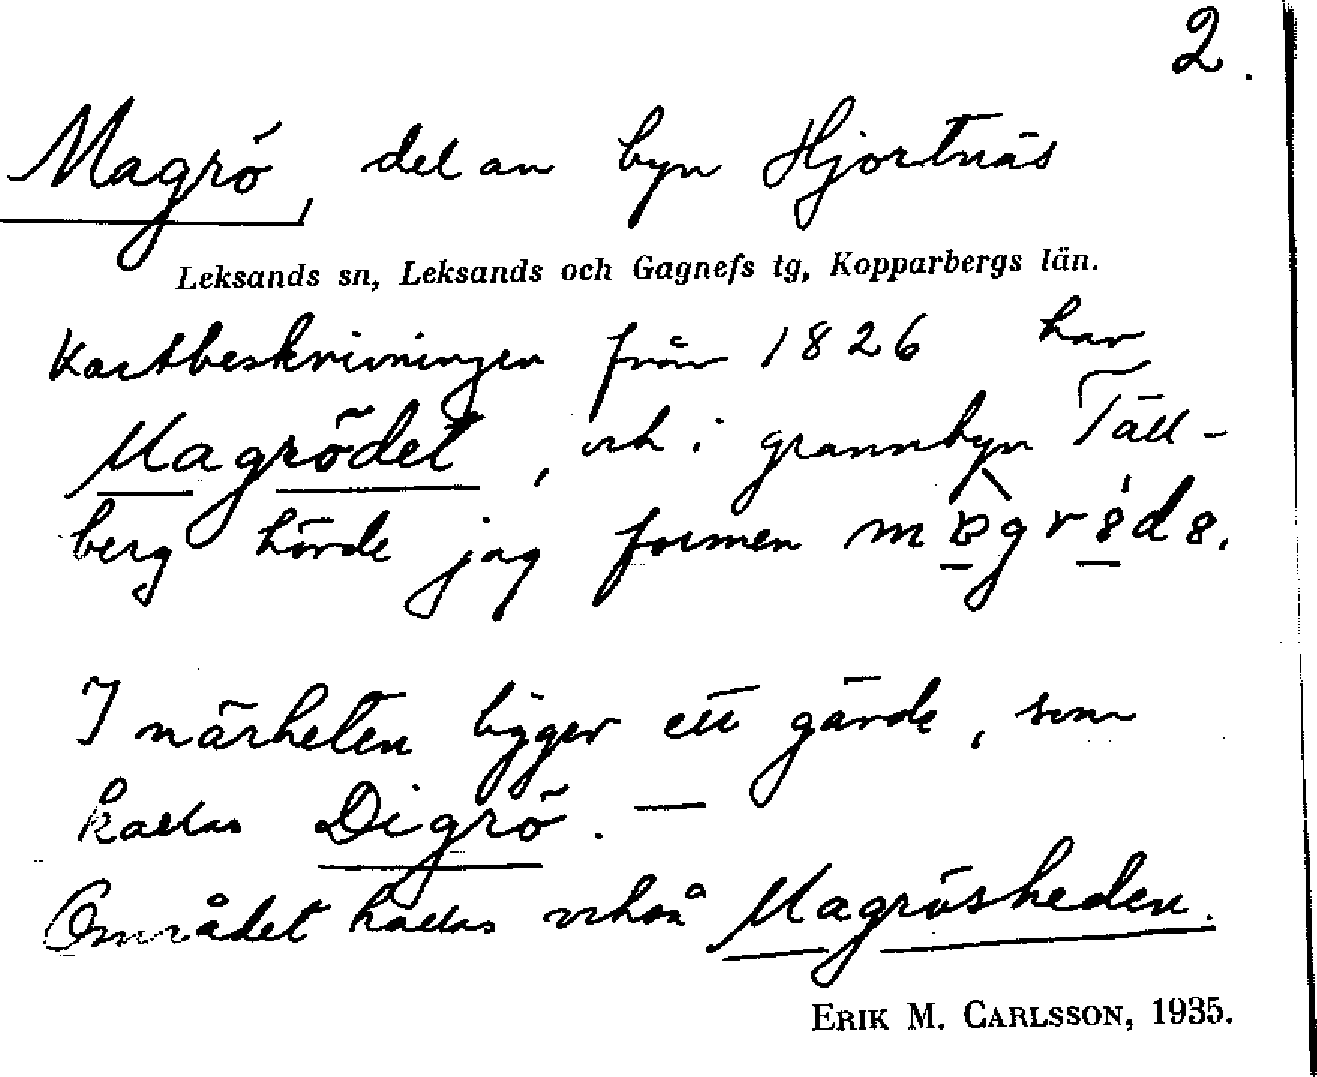 2.
Magrö, del av byn Hjortnäs
Leksands sn, Leksands och Gagnefs tg, Kopparbergs län.
Kartbeskrivningen från 1826 har
Magrödet, och i grannbyn Täll-
berg hörde jag formen
I närheten ligger ett gärde, som
kallas Digrö.
Området kallas också Magrösheden.
ERIK M. CARLSSON, 1935.